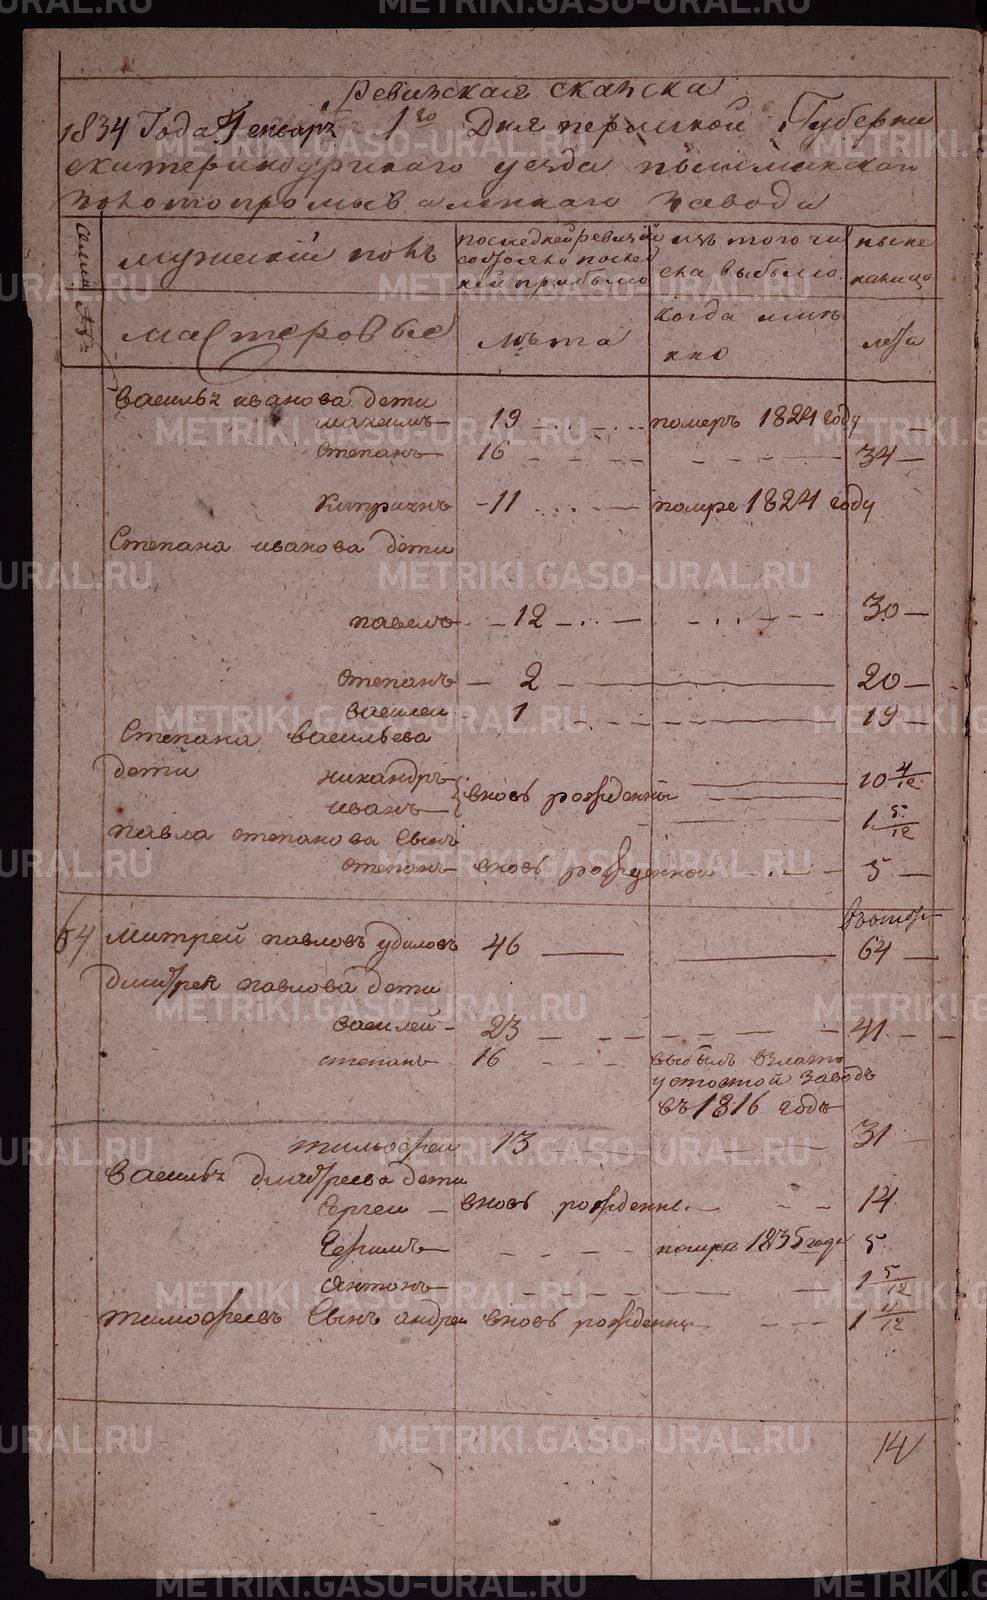 Ревизская сказка
1834 Года Генваръ 1го Дня пермской Губерни
екатеринбурскаго уезда пышминскаго
золотопромываленнаго завода
мужеский полъ
последней ревизии состояло и после ней прибыло
изъ того числа выбыло
ныне налицо
мастеровые
лѣта
когда имянно
лета
Василья иванова дети
максимъ 19 померъ 1824 году
степанъ 16 34
Киприянъ 11 помре 1824 году
Степана иванова дети
павелъ 12 30
степанъ 2 20
василеи 1 19
Степана васильева
дети никандръ вновь рожденны 10 4/12
иванъ 1 5/12
павла степанова сынъ
степанъ вновь рожденной 5
64 митрей павловъ удиловъ 46 64
дмитрея павлова дети
василей 23 41
степанъ 16 выбылъ в злато
устовской заводъ
въ 1816 годъ
тимофеи 13 31
Василья дмитреева дети
сергеи вновь рожденне 14
померъ 1835 годе 5
антонъ 1 5/12
тимофеевъ сынъ андреи вновь рожденны 1 4/12
14
METRIKI.GASO-URAL.RU